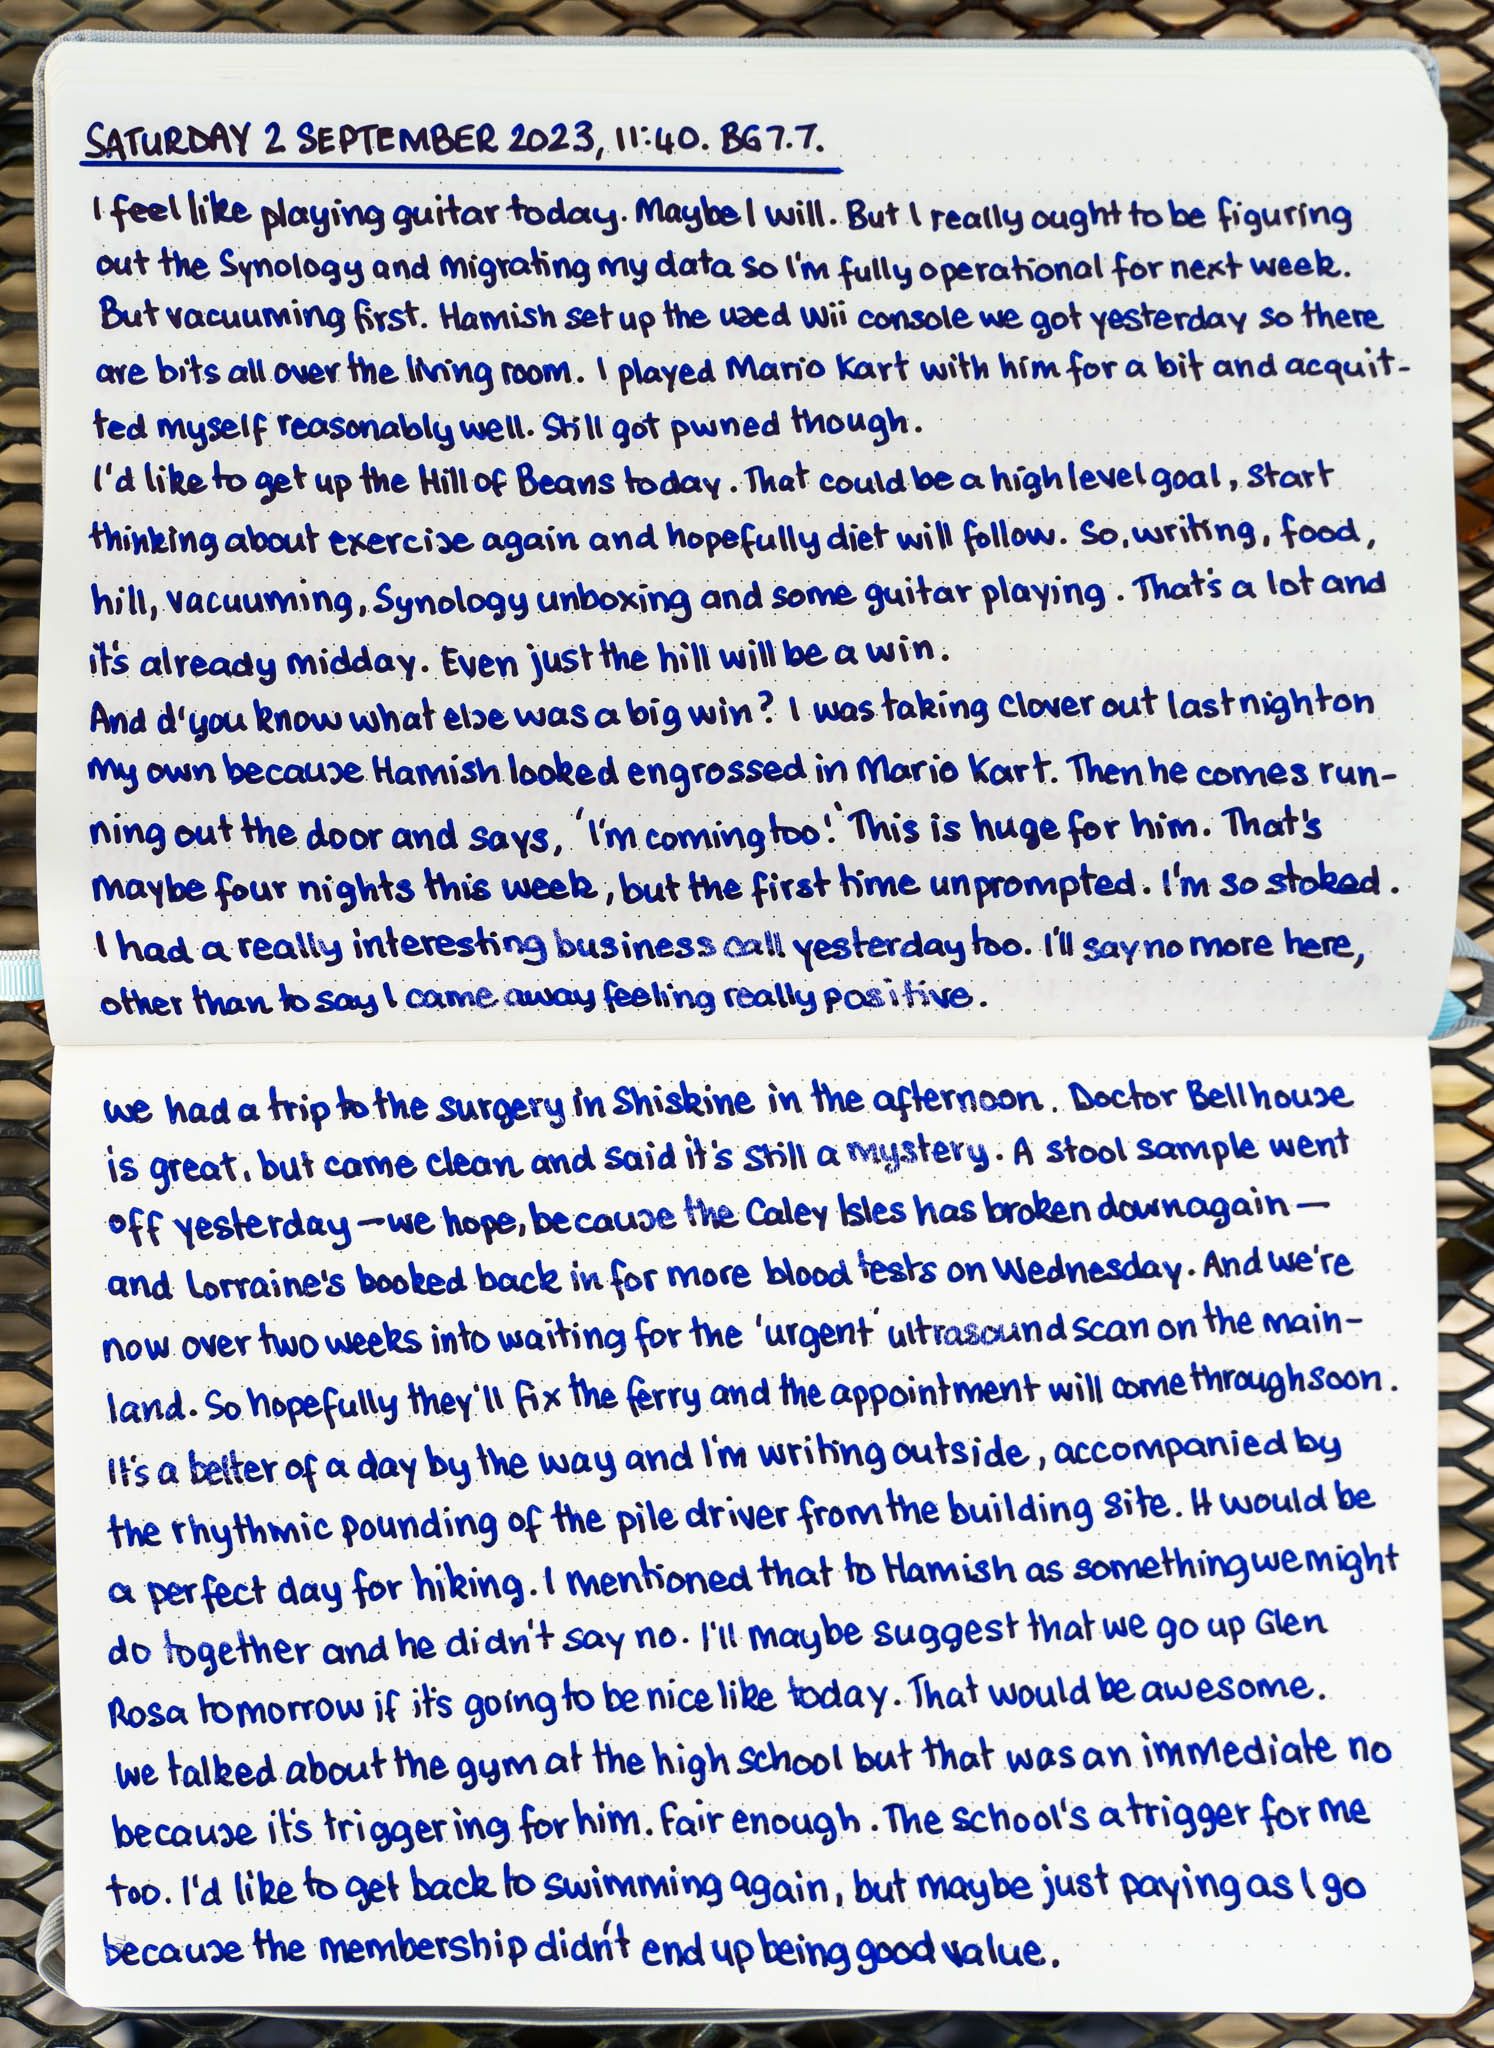 SATURDAY 2 SEPTEMBER 2023, 11:40. BG 7.7.
I feel like playing guitar today. Maybe I will. But I really ought to be figuring
out the Synology and migrating my data so I'm fully operational for next week.
But vacuuming first. Hamish set up the used Wii console we got yesterday so there
are bits all over the living room. I played Mario Kart with him for a bit and acquit-
ted myself reasonably well. Still got pwned though.
I'd like to get up the Hill of Beans today. That could be a high level goal, start
thinking about exercise again and hopefully diet will follow. So, writing, food,
hill, vacuuming, Synology unboxing and some guitar playing. That's a lot and
it's already midday. Even just the hill will be a win.
And d'you know what else was a big win? I was taking Clover out last night on
my own because Hamish looked engrossed in Mario Kart. Then he comes run-
ning out the door and says, 'I'm coming too!' This is huge for him. That's
maybe four nights this week, but the first time unprompted. I'm so stoked.
I had a really interesting business call yesterday too. I'll say no more here,
other than to say I came away feeling really positive.
We had a trip to the surgery in Shiskine in the afternoon. Doctor Bellhouse
is great, but came clean and said it's still a mystery. A stool sample went
off yesterday – we hope, because the Caley Isles has broken down again –
and Lorraine's booked back in for more blood tests on Wednesday. And we're
now over two weeks into waiting for the 'urgent' ultrasound scan on the main-
land. So hopefully they'll fix the ferry and the appointment will come through soon.
It's a belter of a day by the way and I'm writing outside, accompanied by
the rhythmic pounding of the pile driver from the building site. It would be
a perfect day for hiking. I mentioned that to Hamish as something we might
do together and he didn't say no. I'll maybe suggest that we go up Glen
Rosa tomorrow if it's going to be nice like today. That would be awesome.
We talked about the gym at the high school but that was an immediate no
because it's triggering for him. Fair enough. The school's a trigger for me
too. I'd like to get back to swimming again, but maybe just paying as I go
because the membership didn't end up being good value.